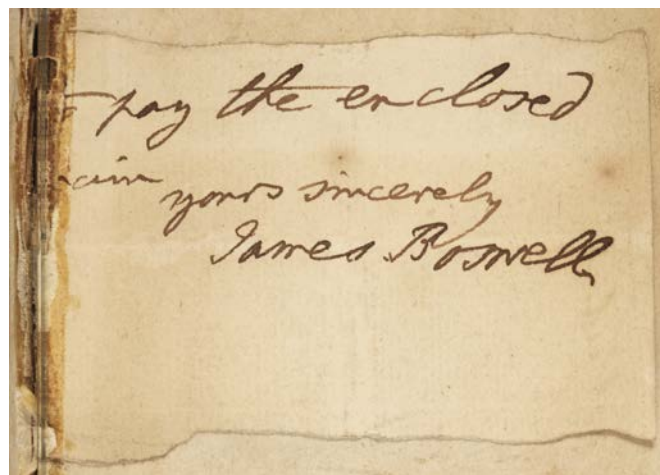 pay the enclosed
yours sincerely
James Boswell